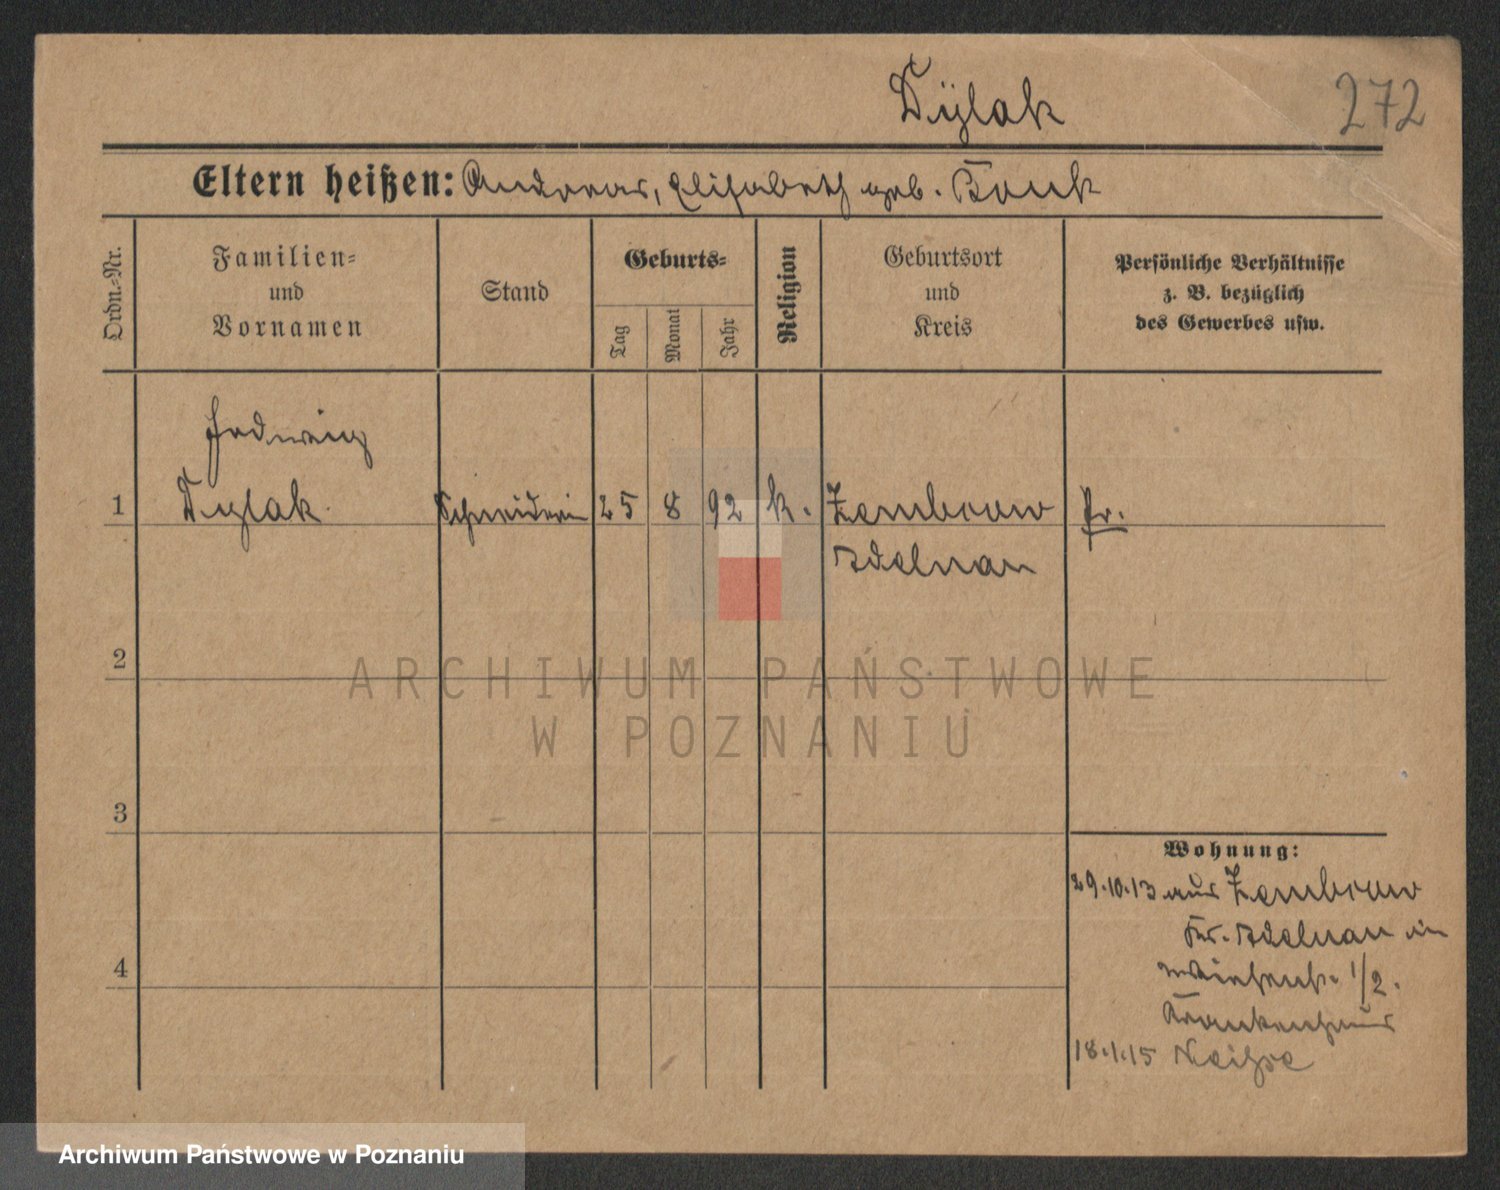 Dÿlak
272
Eltern heißen: Andreas, Elisabeth geb. Bonk
Ordn.-Nr.
Familien-
und
Vornamen
Stand
Geburts-
Tag
Monat
Jahr
Religion
Geburtsort
und
Kreis
Persönliche Verhältnisse
z. B. bezüglich
des Gewerbes usw.
Hedwig
1 Dylak Schneiderin 25 8 92 k. Zembrow Pr.
Adelnau
2
ARCHIWUM PAŃSTWOWE
W POZNANIU
3
Wohnung:
29.10.13 aus Zembrow
Kr. Adelnau in
1/2.
4
Krankenhaus
18.1.15 Neisse
Archiwum Państwowe w Poznaniu